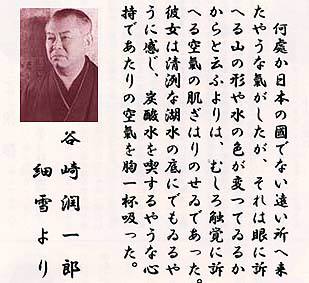 何處か日本の國でない遠い所へ来
たやうな氣がしたが、それは眼に訴
へる山の形や水の色が変つてゐるか
からと云ふよりは、むしろ触覚に訴
へる空氣の肌ざはりのせゐであった。
彼女は清冽な湖水の底にでもゐるや
うに感じ、炭酸水を喫するやうな心
持であたりの空氣を胸一杯吸った。
谷崎潤一郎
細雪より